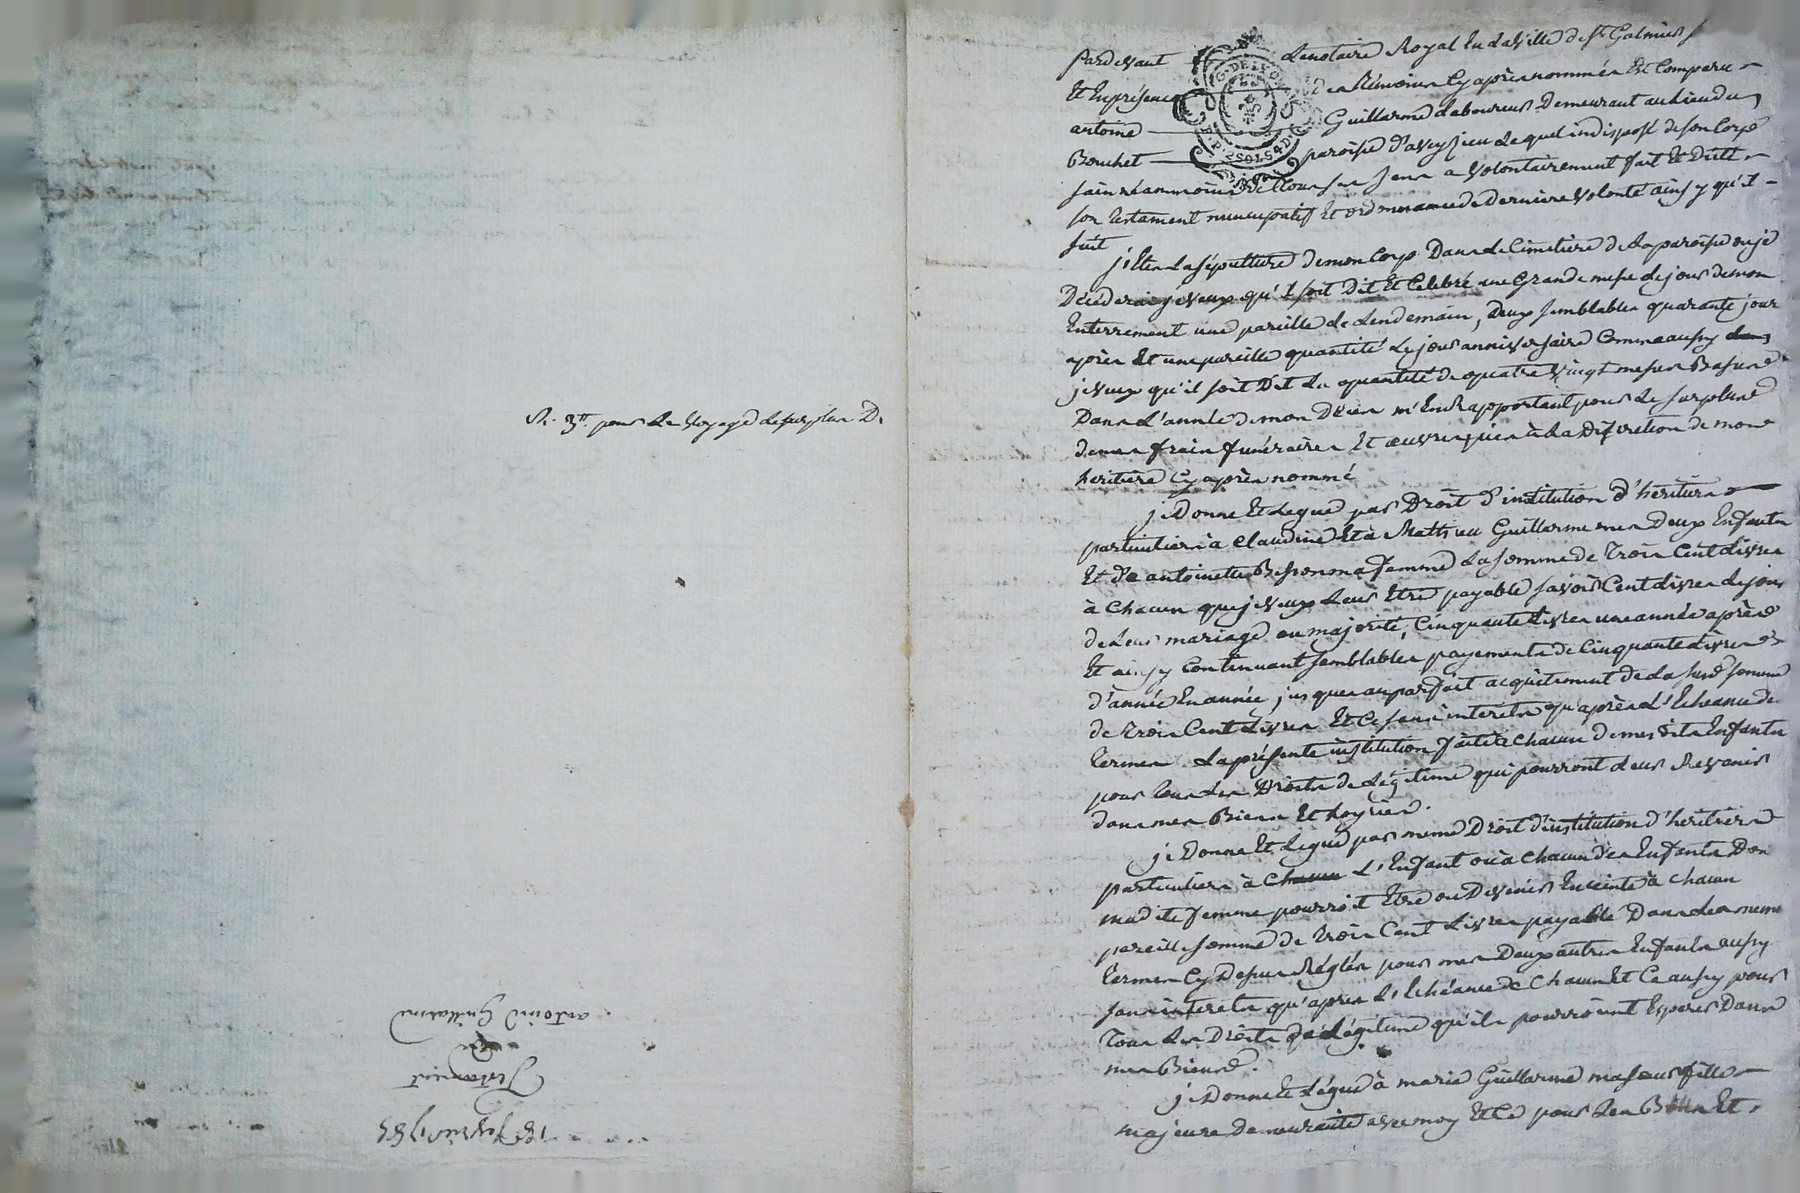 R. 3 ₶ pour le voyage le surplus D.
antoine Guillarme
Testament
18 Janvier 1785
Pardevant Le notaire Royal En La Ville de St Galmier
Et En présence des témoins Cy après nommés Est Comparu
antoine Guillarme Laboureur Demeurant au Lieu du
Bouchet paroisse d'aveysieu Lequel indisposé de son Corps
sain néanmoins de tous ses sens a volontairement fait Et Dicté
son testament nuncupatif Et ordonnance de Derniere volonté ainsy qu'il
suit
j'Elis La sépulture de mon Corps Dans Le Cimetiere de La paroisse ou je
Décéderai, je veux qu'il soit Dit Et Célébré une Grande messe Le jour de mon
Enterrement une pareille Le Lendemain, Deux semblables quarante jour
après Et une pareille quantité Le jour anniversaire Comme aussy
je veux qu'il soit Dit La quantité de quatre vingt messes Basses
Dans L'année de mon Décès m'En Rapportant pour Le surplus
de mes frais funéraires Et oeuvres pies à La Discretion de mon
heritiere Cy après nommé
je Donne Et Legue par Droit d'institution d'héritiers
particuliers à Claudine Et à Mathieu Guillarme mes Deux Enfants
Et d'antoinette Bessono ma femme La somme de Trois Cent Livres
à Chacun que je veux Leur Etre payable savoir Cent Livres Le jour
de Leur mariage ou majorité, Cinquante Livres une année après
Et ainsy Continuant semblables payements de Cinquante Livres
d'année En année, jusques au parfait acquittement de La susd. somme
de Trois Cent Livres Et Ce sans intérêts qu'après L'Echeance des
termes La présente institution faite à Chacun de mes dits Enfants
pour tous Les Droits de Légitime qui pourront Leur Revenir
dans mes Biens Et hoyries.
je Donne Et Legue par meme Droit d'institution d'heritiers
particuliers à Chacun L'Enfant ou à Chacun des Enfants Don
madite femme pourroit Etre ou Devenir Enceinte à Chacun
pareille somme de Trois Cent Livres payable Dans Les meme
termes Cy Dessus Réglés pour mes Deux autres Enfants aussy
sans interets qu'après L'Echéance de Chacun Et Ce aussy pour
Tous Les Droits de Légitime qu'ils pourroient Esperer Dans
mes Biens.
je Donne Et Légue à marie Guillarme ma soeur fille
majeure Demeurante avec moy Et Ce pour Les Bons Et